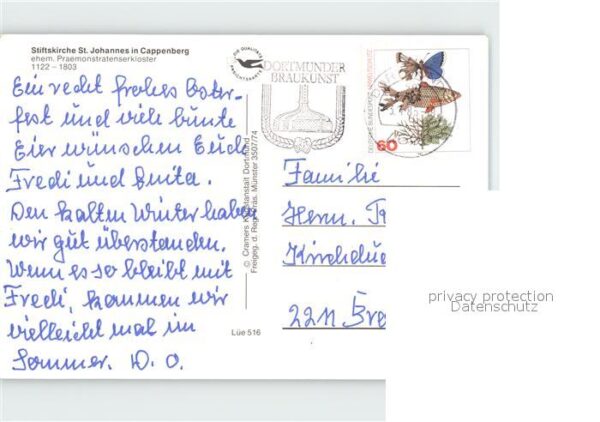 Stiftskirche St. Johannes in Cappenberg
ehem. Praemonstratenserkloster
1122 – 1803
Ein recht frohes Oster-
fest und viele bunte
Eier wünschen Euch
Fredi und Anita.
Den kalten Winter haben
wir gut überstanden.
Wenn es so bleibt mit
Fredi, kommen wir
vielleicht mal im
Sommer. D. O.
DIE QUALITÄTS
ANSICHTSKARTE
DORTMUNDER
BRAUKUNST
DEUTSCHE BUNDESPOST
60
© Cramers Kunstanstalt Dortmund
Freigeg. d. Reg. Präs. Münster 3507/74
Lüe 516
Familie
Herm.
2211
privacy protection
Datenschutz